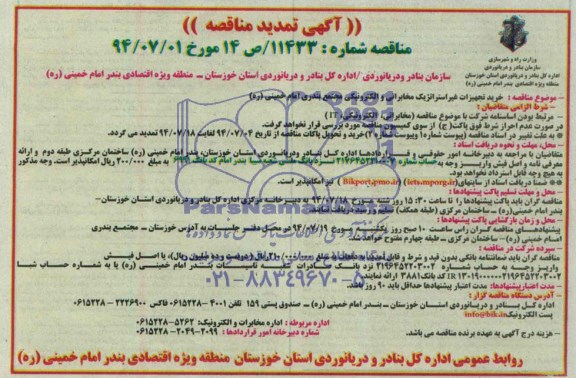 (( آگهی تمدید مناقصه ))
مناقصه شماره : ۱۱۴۳۳/ص ۱۴ مورخ ۹۴/۰۷/۰۱
وزارت راه و شهرسازی
سازمان بنادر و دریانوردی
اداره کل بنادر و دریانوردی استان خوزستان
منطقه ویژه اقتصادی بندر امام خمینی (ره)
سازمان بنادر ودریانوردی /اداره کل بنادر و دریانوردی استان خوزستان – منطقه ویژه اقتصادی بندر امام خمینی (ره)
– موضوع مناقصه : خرید تجهیزات غیراستراتژیک مخابراتی و الکترونیکی مجتمع بندری امام خمینی (ره)
– شرط الزامی متقاضیان :
– مرتبط بودن اساسنامه شرکت با موضوع مناقصه (مخابراتی، الکترونیکی، IT)
در صورت عدم احراز شرط فوق پاکت( ج) از سوی کمیسیون مناقصه مورد بررسی قرار نخواهد گرفت.
به علت تغییر در اسناد مناقصه (پیوست شماره۱ وپیوست شماره ۲) خرید و تحویل پاکات مناقصه از تاریخ ۹۴/۰۷/۰۴ لغایت ۹۴/۰۷/۱۸ تمدید می گردد.
– محل، مهلت و نحوه دریافت اسناد :
متقاضیان با مراجعه به دبیرخانه امور حقوقی و قراردادها اداره کل بنادر ودریانوردی استان خوزستان، بندر امام خمینی (ره) ساختمان مرکزی طبقه دوم و ارائه
معرفی نامه و اصل فیش واریز وجه به حساب شماره بانک ملی شعبه بندر امام کد بانک به مبلغ ۲۰۰/۰۰۰ ریال امکانپذیر است. وجه مذکور
به هیچ وجه قابل استرداد نخواهد بود.
ضمناً دریافت اسناد از سایتهای (iets.mporg.ir) ( Bikport.pmo.ir ) نیز امکانپذیر است.
– محل و مهلت تسلیم پاکت پیشنهادها :
مناقصه گران باید پاکت پیشنهادها را تا ساعت ۱۵:۳۰ روز شنبه مورخ ۹۴/۰۷/۱۸ به دبیرخانه مرکزی اداره کل بنادر و دریانوردی استان خوزستان–
بندر امام خمینی(ره) – ساختمان مرکزی (طبقه همکف) تسلیم ورسید دریافت نمایند.
– محل و زمان بازگشایی پاکت پیشنهادها :
پیشنهادهای مناقصه گران راس ساعت ۱۰ صبح روز یکشنبه مورخ ۹۴/۰۷/۱۹ در محل دفتر جلسات به آدرس خوزستان – مجتمع بندری
امام خمینی (ره) – ساختمان مرکزی – طبقه چهارم مفتوح خواهد شد.
– سپرده شرکت در مناقصه :
مناقصه گران باید ضمانتنامه بانکی بدون قید و شرط و قابل تمدید به مبلغ ریال، یا اصل فیش
واریز وجه به حساب شماره نزد بانک بندر امام خمینی (ره) یا به شماره حساب شبا
کد بانک ۳۸۸۱ ارائه نمایند.
– مدت اعتبار پیشنهادها: مدت اعتبار پیشنهادها حداقل باید ۹۰ روز باشد.
– آدرس دستگاه مناقصه گزار :
اداره کل بنادر و دریانوردی استان خوزستان – بندر امام خمینی (ره) – صندوق پستی ۱۵۹ تلفن ۴۰۰۱–۰۶۱۵۲۲۸ فاکس ۲۲۶۹۰۰–۰۶۱۵۲۲۸
پست الکترونیک info@bik.ir
اداره مربوطه : اداره مخابرات و الکترونیک: ۵۲۶۲–۰۶۱۵۲۲۸
شماره دبیرخانه امور قراردادها : ۲۰۹۹–۲۰۴۹–۰۶۱۵۲۲۸
– هزینه درج آگهی به عهده برنده مناقصه می باشد.
روابط عمومی اداره کل بنادر و دریانوردی استان خوزستان منطقه ویژه اقتصادی بندر امام خمینی (ره)
ParsNamadData
۰۲۱-۸۸۳۴۹۶۷۰-۵